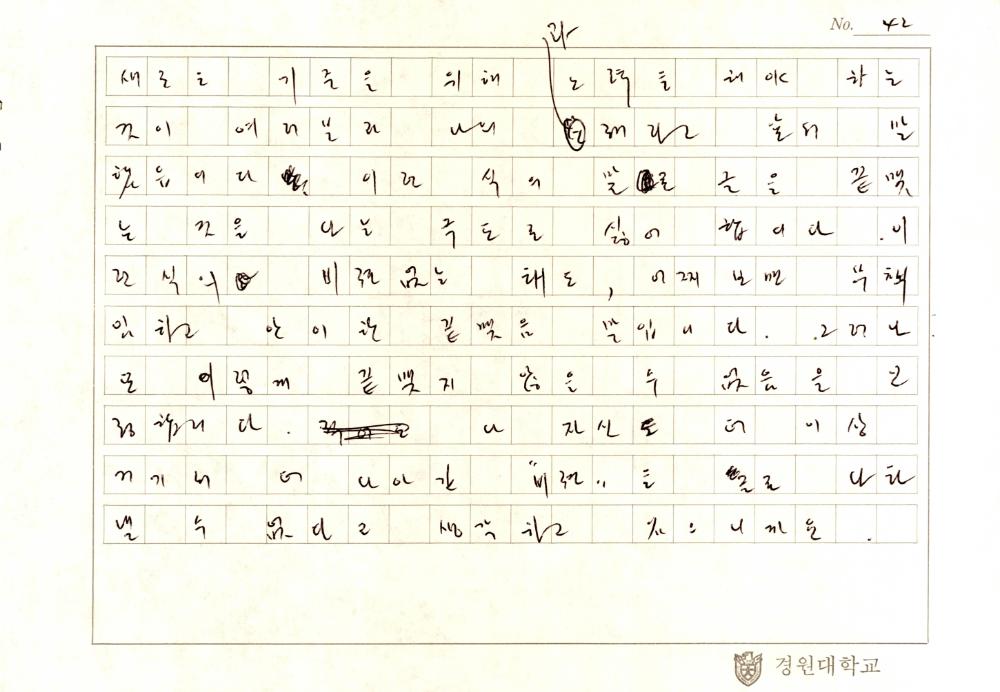 No. 42
과
새로운 기준을 위해 노력을 해야 하는
것이 여러분과 나의 미래라고 늘 말
했습니다. 이런 식의 말로 글을 끝맺
는 것을 나는 극도로 싫어 합니다. 이
런 식의 비젼 없는 태도, 어찌 보면 무책
임하고 안이한 끝맺음 말입니다. 그러나
또 이렇게 끝맺지 않을 수 없음을 고
합니다. 나 자신도 더 이상
여기서 더 나아간 "비젼"을 글로 나타
낼 수 없다고 생각하고 있으니까요.
경원대학교